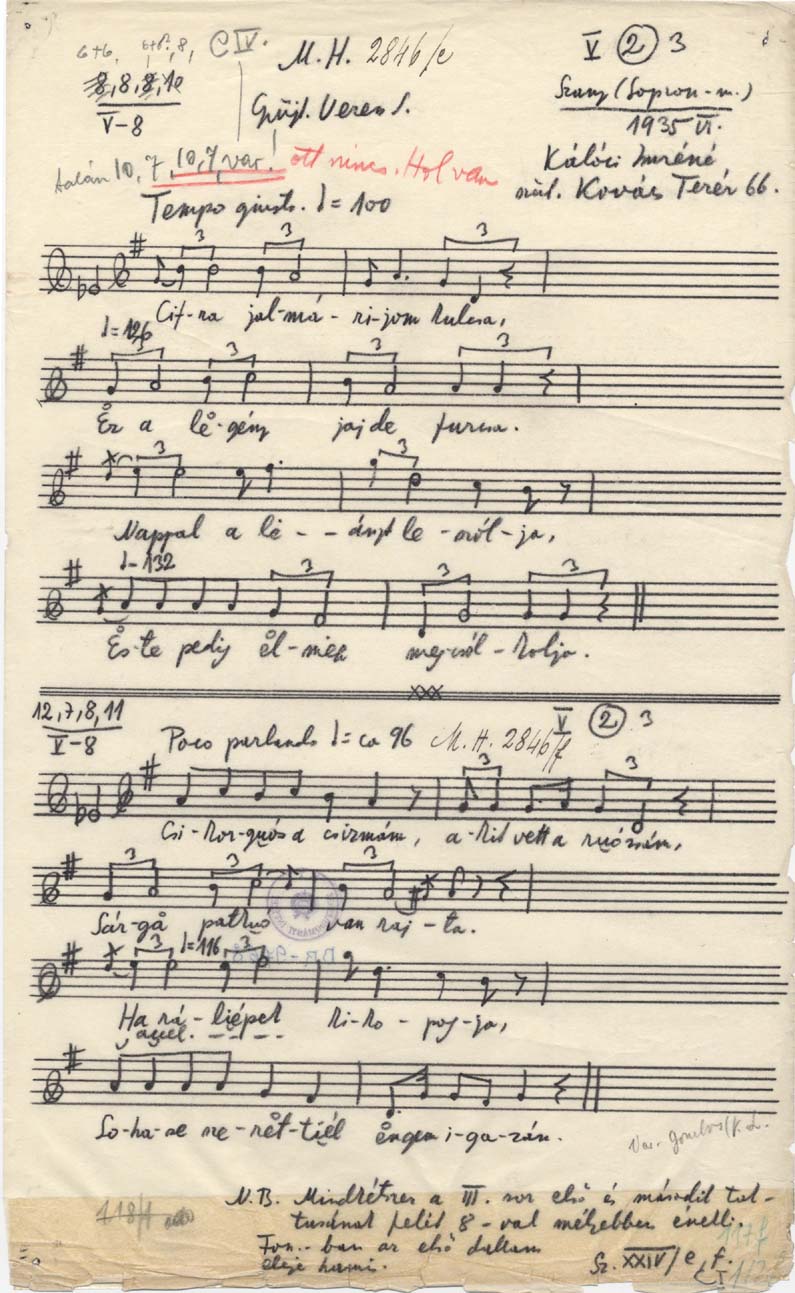 6+6, 8, C IV.
M. H. 2846/e
V 2 3
8, 8, 8, 10
V-8
Gyüjt. Veress S.
Szany (Sopron-m.)
1935 VI.
talán 10, 7, 10, 7, var! ott nincs. Hol van
Kálóci Imréné
szül. Kovács Teréz 66.
Tempo giusto. = 100
3 3 3
Cif-ra jal-má-ri-jom kulcsa,
= 126
3 3 3 3
Ez a lė-gény jaj de furcsa.
3 3
Nappal a lë--ányt le-szól-ja,
= 132
3 3 3
Ės-te pedig ėl-mėn meg-csól-kolja.
12, 7, 8, 11
V-8
Poco parlando = ca 96
M. H. 2846/f
V 2 3
3 3
Csi-kor-guós a csizmám, a-kit vett a ruózsám,
3 3 3
Sár-gå patkuo van raj-ta.
3 = 116 3
Ha rá-liépek ki-ko-pog-ja,
So-ha-se sze-rėt-tiél ėngem i-ga-zán.
Var. Gombos/K. L.
118/1
N.B. Mindkétszer a III. sor első és második tak-
tusának felét 8-val mélyebben énekli.
Fon.-ban az első dallam
eleje hamis.
Sz. XXIV/e, f.
117f